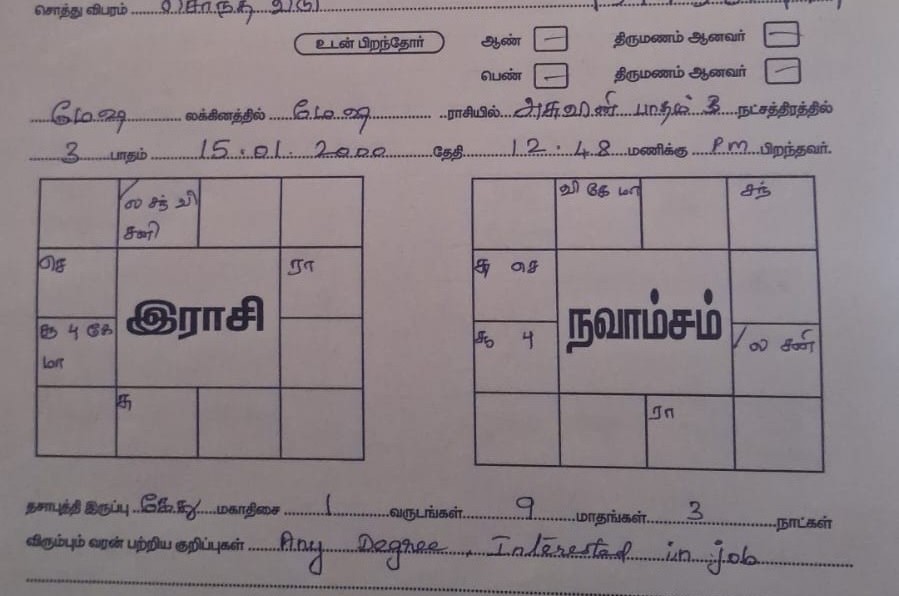 சொத்து விபரம் சொந்த வீடு
உடன் பிறந்தோர் ஆண் – திருமணம் ஆனவர் –
பெண் – திருமணம் ஆனவர் –
மேஷ லக்கினத்தில் மேஷ ராசியில் அசுவனி பாதம் 3 நட்சத்திரத்தில்
3 பாதம் 15.01.2000 தேதி 12.48 மணிக்கு Pm பிறந்தவர்.
ல சந் வி
சனி
செ
ரா
சூ பு கே
மா
இராசி
சு
வி கே மா
சந்
சு செ
சூ பு
நவாம்சம்
ல சனி
ரா
தசாபுத்தி இருப்பு கேது மகாதிசை 1 வருடங்கள் 9 மாதங்கள் 3 நாட்கள்
விரும்பும் வரன் பற்றிய குறிப்புகள் Any Degree, Interested in job